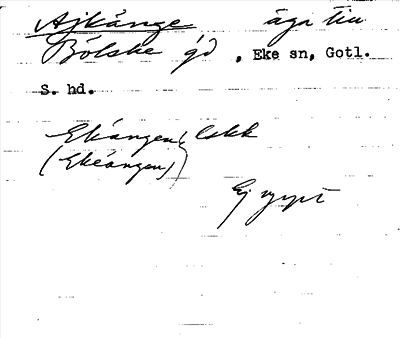 Ajkånge äga till
Bölske gd, Eke sn, Gotl.
S. hd.
Ekängen, lokk
(Ekeängen)
Ej nypt